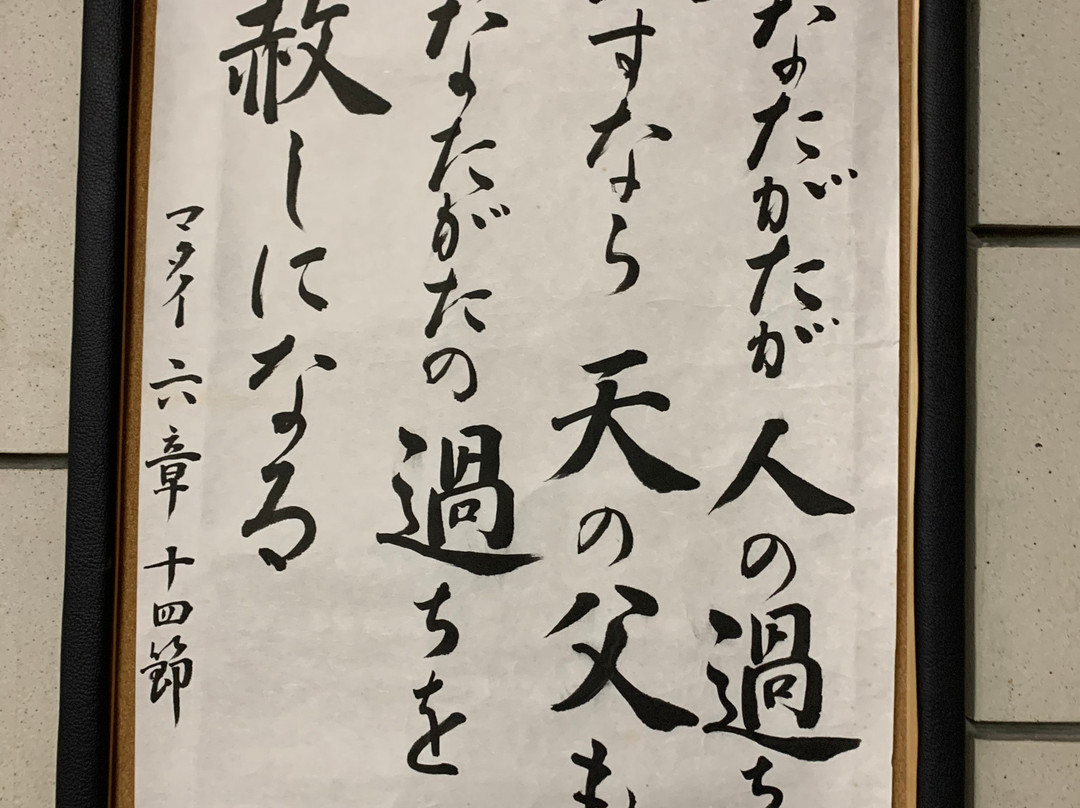 なたがたが 人の過ち
すなら 天の父も
なたがたの過ちを
赦しになる
マタイ 六章 十四節